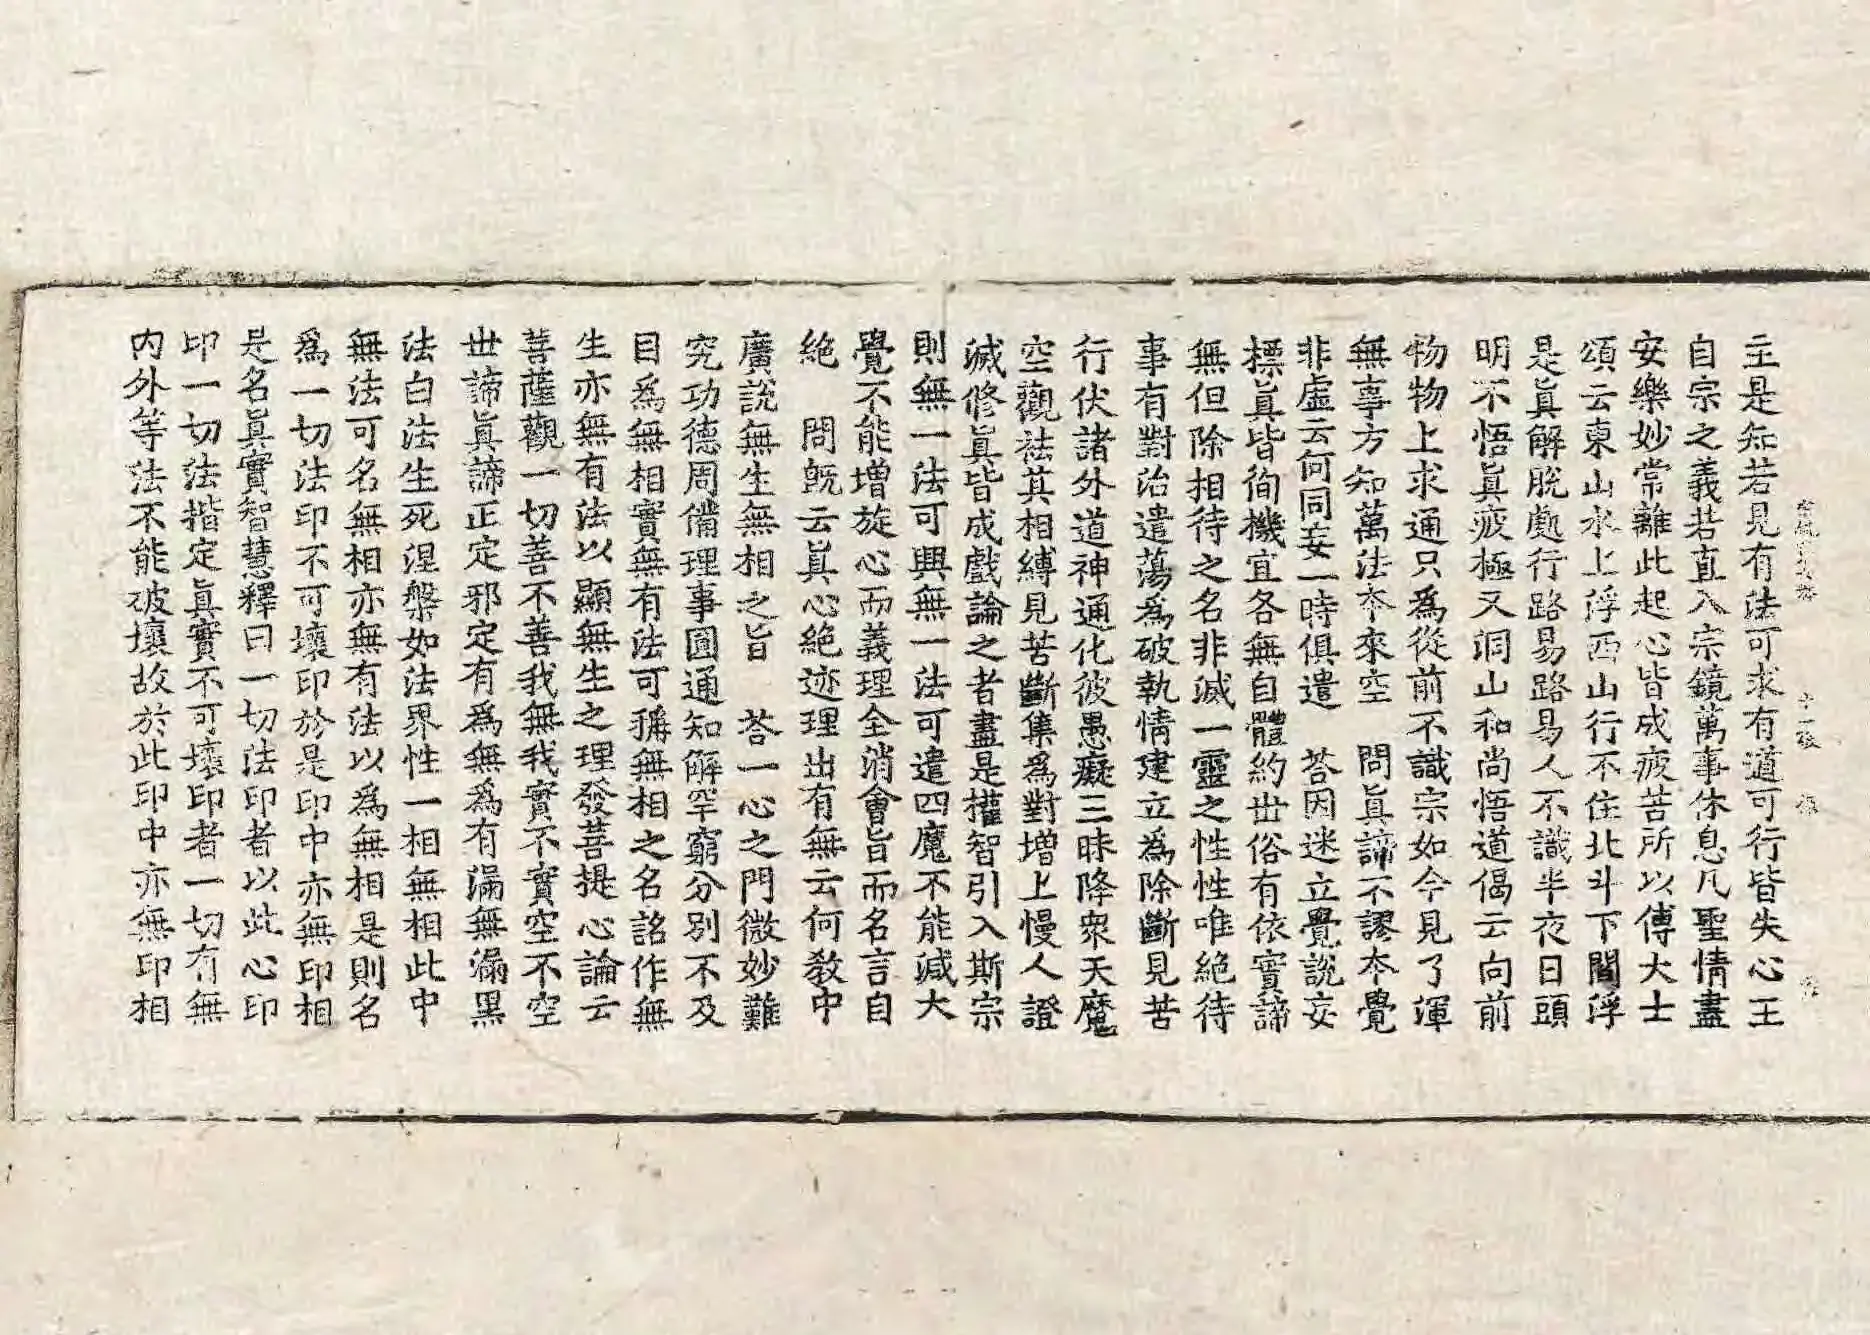 主是知若見有法可求有道可行皆失心王
自宗之義若直入宗鏡萬事休息凡聖情盡
安樂妙常離此起心皆成疲苦所以傅大士
頌云東山水上浮西山行不住北斗下閻浮
是眞解脫處行路易路易人不識半夜日頭
明不悟眞疲極又洞山和尚悟道偈云向前
物物上求通只爲從前不識宗如今見了渾
無事方知萬法夲來空　問眞諦不謬夲覺
非虛云何同妄一時俱遣　荅因迷立覺說妄
標眞皆徇機宜各無自體約世俗有依實諦
無但除相待之名非滅一靈之性性唯絶待
事有對治遣蕩爲破執情建立爲除斷見苦
行伏諸外道神通化彼愚癡三昧降衆天魔
空觀袪其相縛見苦斷集爲對增上慢人證
滅修眞皆成戲論之者盡是權智引入斯宗
則無一法可興無一法可遣四魔不能減大
覺不能增旋心而義理全消會旨而名言自
絶　問旣云眞心絶迹理出有無云何敎中
廣說無生無相之旨　荅一心之門微妙難
究功德周備理事圓通知解罕窮分別不及
目爲無相實無有法可稱無相之名詺作無
生亦無有法以顯無生之理發菩提心論云
菩薩觀一切善不善我無我實不實空不空
世諦眞諦正定邪定有爲無爲有漏無漏黑
法白法生死涅槃如法界性一相無相此中
無法可名無相亦無有法以爲無相是則名
爲一切法印不可壞印於是印中亦無印相
是名眞實智慧釋曰一切法印者以此心印
印一切法揩定眞實不可壞印者一切有無
內外等法不能破壞故於此印中亦無印相